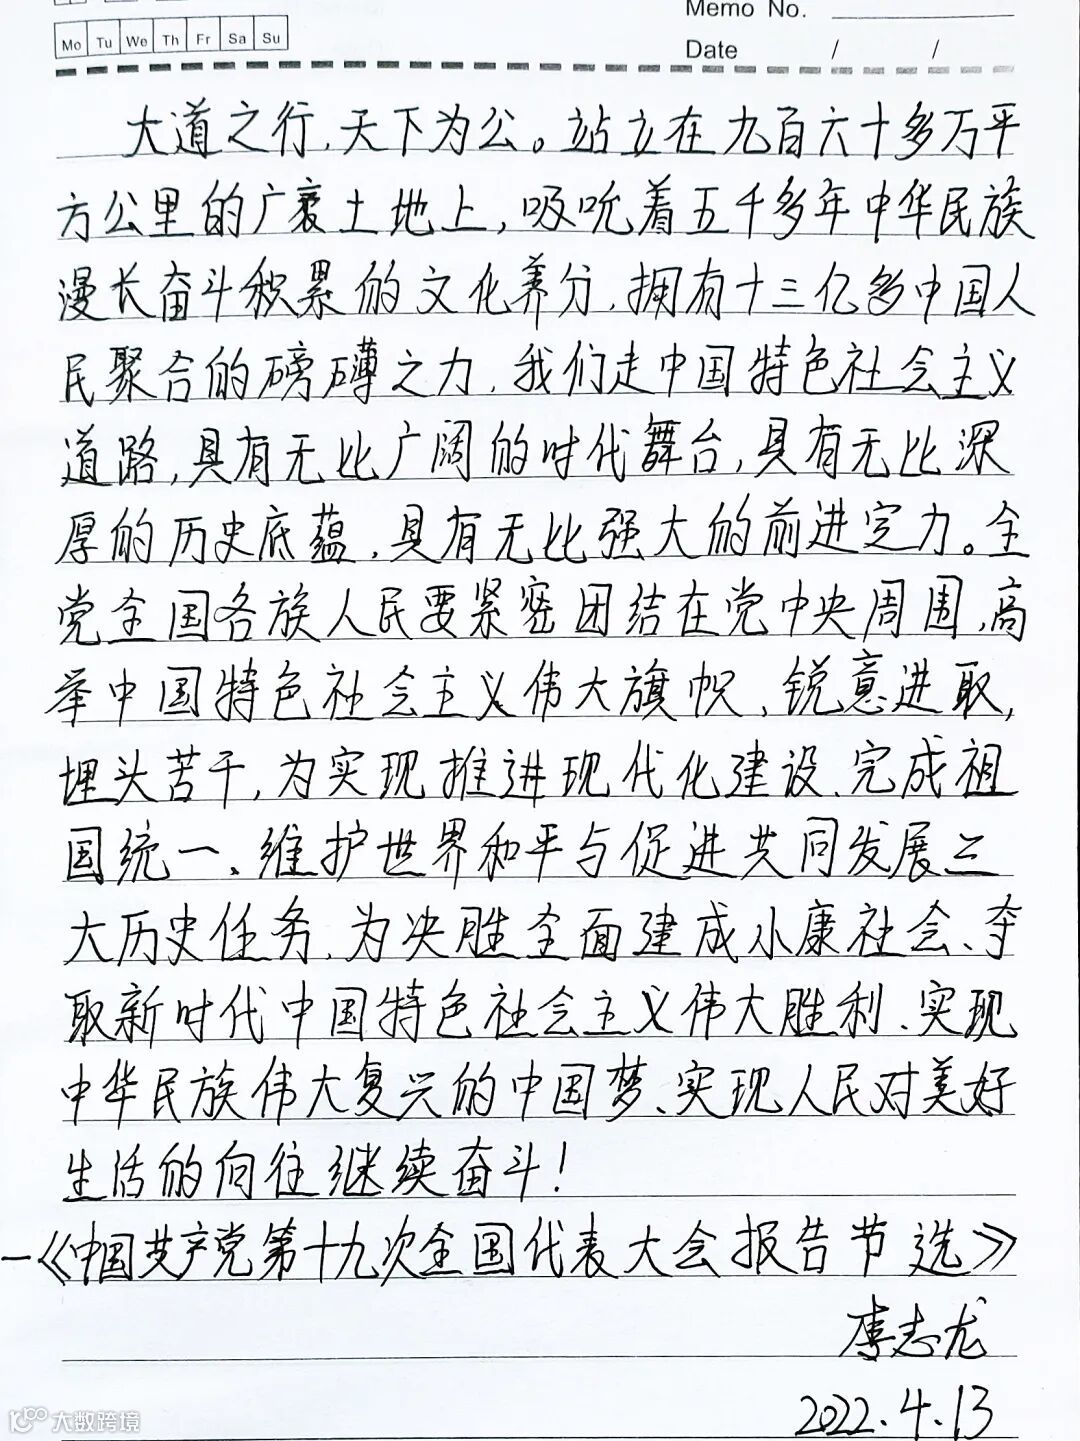 Memo No.
Mo Tu We Th Fr Sa Su
Date / /
大道之行,天下为公。站立在九百六十多万平
方公里的广袤土地上,吸吮着五千多年中华民族
漫长奋斗积累的文化养分,拥有十三亿多中国人
民聚合的磅礴之力,我们走中国特色社会主义
道路,具有无比广阔的时代舞台,具有无比深
厚的历史底蕴,具有无比强大的前进定力。全
党全国各族人民要紧密团结在党中央周围,高
举中国特色社会主义伟大旗帜、锐意进取,
埋头苦干,为实现推进现代化建设、完成祖
国统一、维护世界和平与促进共同发展三
大历史任务,为决胜全面建成小康社会、夺
取新时代中国特色社会主义伟大胜利、实现
中华民族伟大复兴的中国梦、实现人民对美好
生活的向往继续奋斗!
—《中国共产党第十九次全国代表大会报告节选》
李志龙
2022.4.13
大数跨境